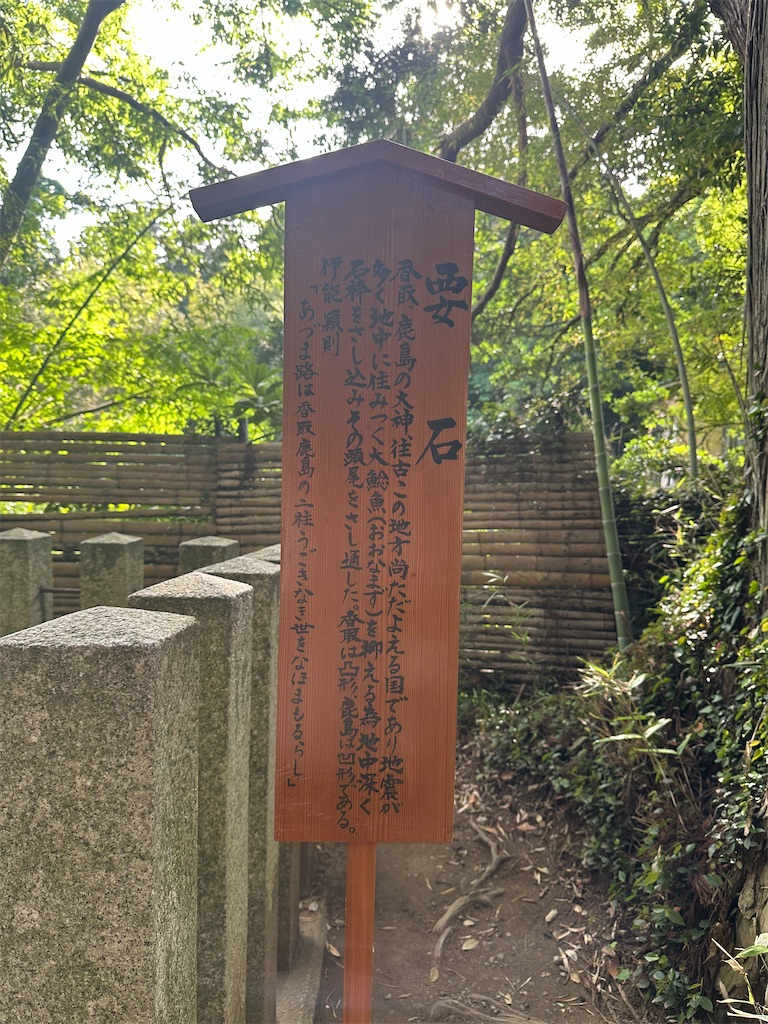 要石
香取、鹿島の大神、往古この地方尚ただよえる国であり地震が
多く地中に住みつく大鯰魚(おおなまず)を抑える為地中深く
石棒をさし込みその頭尾をさし通した。香取は凸形、鹿島は凹形である。
伊能穎則
「あづま路は香取鹿島の二柱うごきなき世をなほまもるらし」